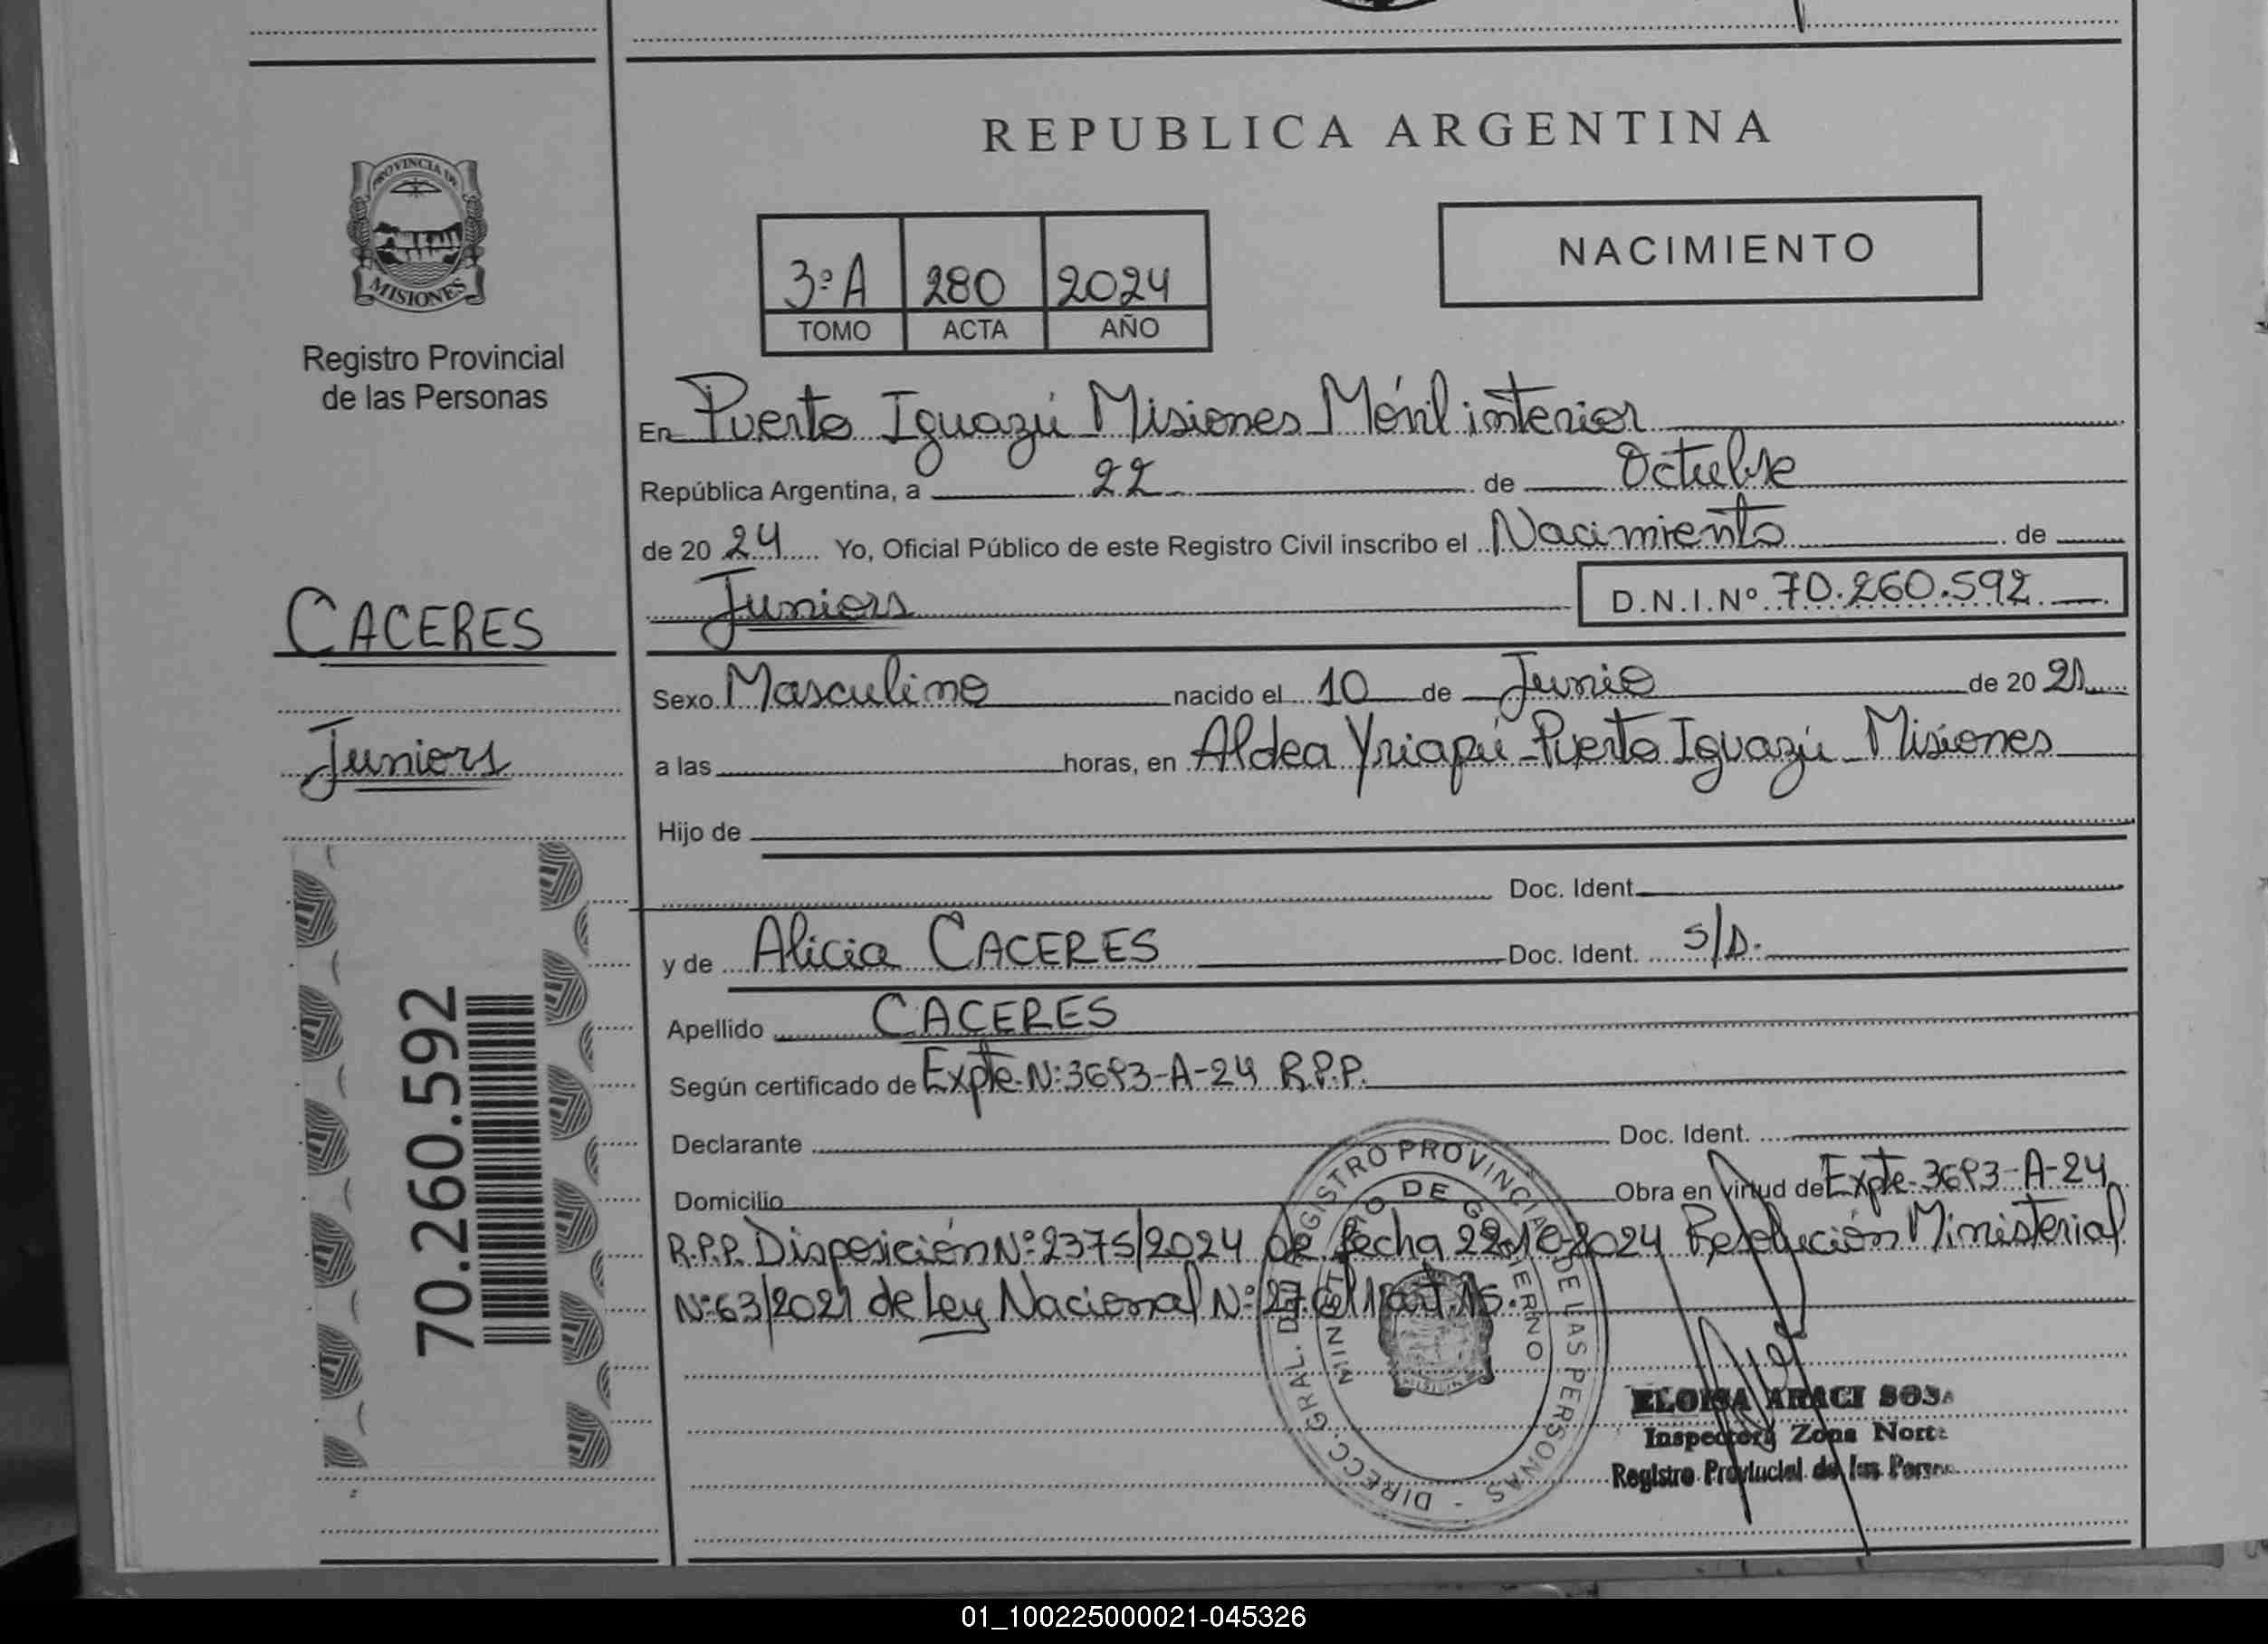 REPUBLICA ARGENTINA
PROVINCIA DE
MISIONES
Registro Provincial
de las Personas
3ºA 280 2024
TOMO ACTA AÑO
NACIMIENTO
En Puerto Iguazú Misiones Móvil interior
República Argentina, a 22 de Octubre
de 20 24 Yo, Oficial Público de este Registro Civil inscribo el Nacimiento de
Juniors D.N.I.Nº 70.260.592
CACERES
Juniors
Sexo Masculino nacido el 10 de Junio de 20 21
a las horas, en Aldea Yriapú - Puerto Iguazú Misiones
Hijo de
Doc. Ident.
y de Alicia CACERES Doc. Ident. S/D.
Apellido CACERES
Según certificado de Expte. Nº 3693-A-24 R.P.P.
Declarante Doc. Ident.
Domicilio Obra en virtud de Expte. 3693-A-24
R.P.P. Disposición Nº 2375/2024 de fecha 22-10-2024 Resolución Ministerial
Nº 63/2021 de Ley Nacional Nº art. 15.
70.260.592
DIRECC. GRAL. DEL REGISTRO PROVINCIAL DE LAS PERSONAS -
MINISTERIO DE GOBIERNO
ELOISA ARACI SOSA
Inspectora Zona Norte
Registro Provincial de las Person
01_100225000021-045326